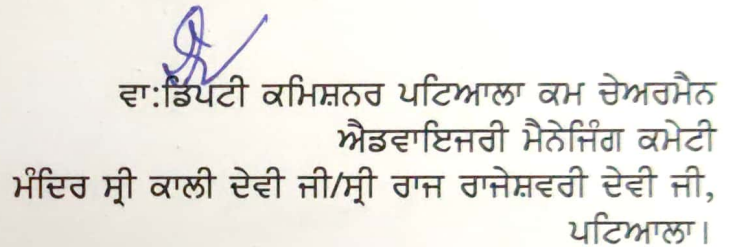 ਵਾ:ਡਿਪਟੀ ਕਮਿਸ਼ਨਰ ਪਟਿਆਲਾ ਕਮ ਚੇਅਰਮੈਨ
ਐਡਵਾਇਜਰੀ ਮੈਨੇਜਿੰਗ ਕਮੇਟੀ
ਮੰਦਿਰ ਸ੍ਰੀ ਕਾਲੀ ਦੇਵੀ ਜੀ/ਸ੍ਰੀ ਰਾਜ ਰਾਜੇਸ਼ਵਰੀ ਦੇਵੀ ਜੀ,
ਪਟਿਆਲਾ।